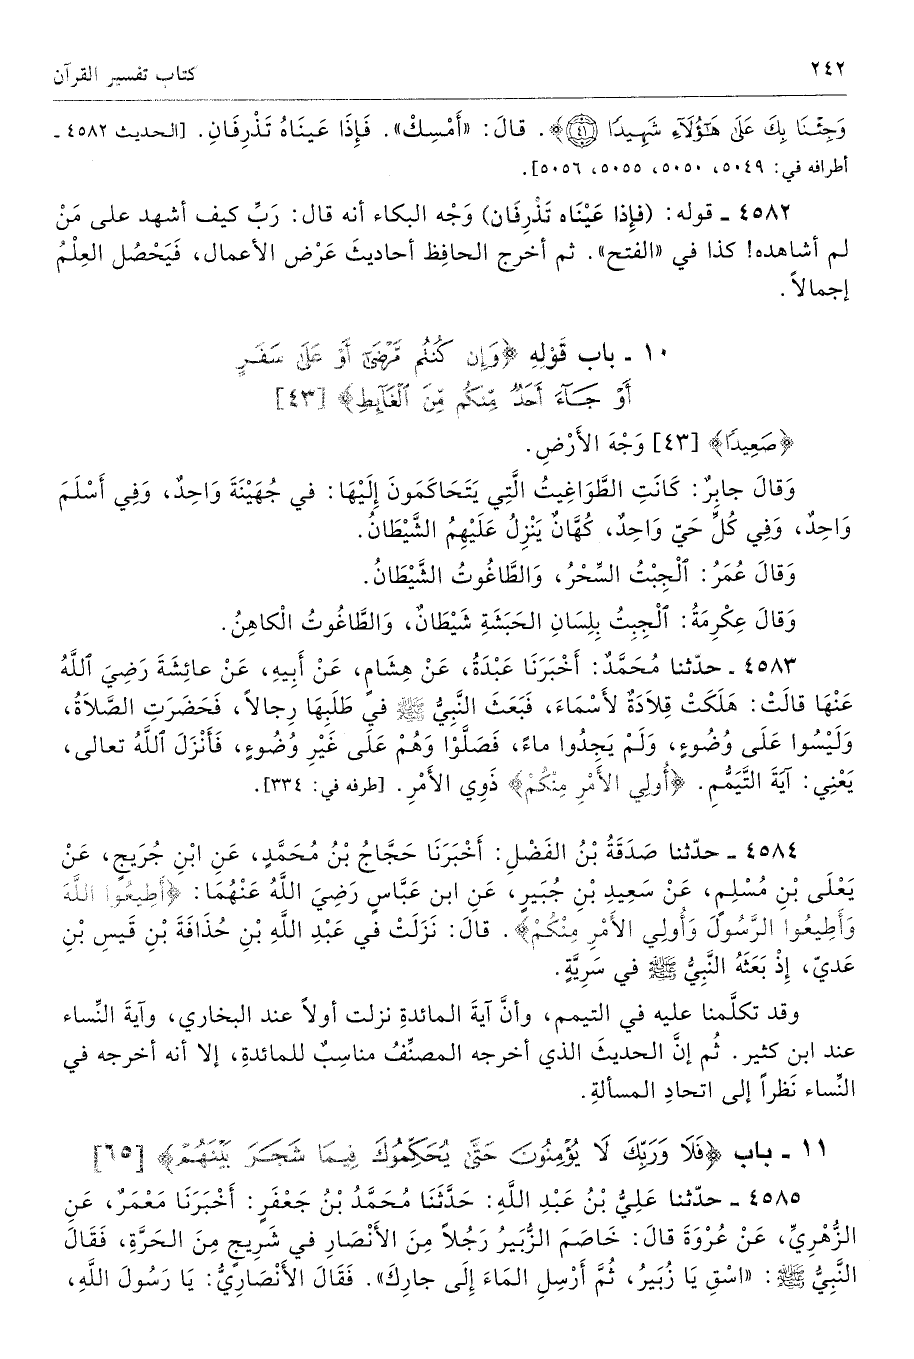 ٢٤٢ كتاب تفسير القرآن
وَجِئْنَا بِكَ عَلَىٰ هَٰٓؤُلَآءِ شَهِيدًا ﴿٤١﴾﴾. قالَ: «أَمْسِكْ». فَإِذَا عَينَاهُ تَذْرِفَانِ. [الحديث ٤٥٨٢ ـ
أطرافه في: ٥٠٤٩، ٥٠٥٠، ٥٠٥٥، ٥٠٥٦].
٤٥٨٢ ـ قوله: (فإذا عَيْنَاه تَذْرِفَان) وَجْه البكاء أنه قال: رَبِّ كيف أشهد على مَنْ
لم أشاهده! كذا في «الفتح». ثم أخرج الحافِظ أحاديثَ عَرْض الأعمال، فَيَحْصُل العِلْمُ
إجمالاً.
١٠ ـ باب قَوْلِهِ ﴿وَإِن كُنتُم مَّرْضَىٰٓ أَوْ عَلَىٰ سَفَرٍ
أَوْ جَآءَ أَحَدٌ مِّنكُم مِّنَ ٱلْغَآئِطِ﴾ [٤٣]
﴿صَعِيدًا﴾ [٤٣] وَجْهَ الأَرْضِ.
وَقالَ جابِرٌ: كَانَتِ الطَّوَاغِيتُ الَّتِي يَتَحَاكَمُونَ إِلَيْهَا: في جُهَيْنَةَ وَاحِدٌ، وَفِي أَسْلَمَ
وَاحِدٌ، وَفِي كُلِّ حَيّ وَاحِدٌ، كُهَّانٌ يَنْزِلُ عَلَيْهِمُ الشَّيْطَانُ.
وَقالَ عُمَرُ: ٱلْجِبْتُ السِّحْرُ، وَالطَّاغُوتُ الشَّيْطَانُ.
وَقالَ عِكْرِمَةُ: ٱلْجِبتُ بِلِسَانِ الحَبَشَةِ شَيْطَانٌ، وَالطَّاغُوتُ الْكاهِنُ.
٤٥٨٣ ـ حدّثنا مُحَمَّدٌ: أَخْبَرَنَا عَبْدَةُ، عَنْ هِشَامٍ، عَنْ أَبِيهِ، عَنْ عائِشَةَ رَضِيَ ٱللَّهُ
عَنْهَا قالَتْ: هَلَكَتْ قِلاَدَةٌ لأَسْمَاءَ، فَبَعَثَ النَّبِيُّ ﷺ في طَلَبِهَا رِجالاً، فَحَضَرَتِ الصَّلاَةُ،
وَلَيْسُوا عَلَى وُضُوءٍ، وَلَمْ يَجِدُوا ماءً، فَصَلَّوْا وَهُمْ عَلَى غَيْرِ وُضُوءٍ، فَأَنْزَلَ ٱللَّهُ تعالى،
يَعْنِي: آيَةَ التَّيَمُّمِ. ﴿أُولِي الأَمْرِ مِنْكُمْ﴾ ذَوِي الأَمْرِ. [طرفه في: ٣٣٤].
٤٥٨٤ ـ حدّثنا صَدَقَةُ بْنُ الفَضْلِ: أَخْبَرَنَا حَجَّاجُ بْنُ مُحَمَّدٍ، عَنِ ابْنِ جُرَيجٍ، عَنْ
يَعْلَى بْنِ مُسْلِمٍ، عَنْ سَعِيدِ بْنِ جُبَيرٍ، عَنِ ابن عَبَّاسٍ رَضِيَ اللَّهُ عَنْهُمَا: ﴿أَطِيعُوا اللَّهَ
وَأَطِيعُوا الرَّسُولَ وَأُولِي الأَمْرِ مِنْكُمْ﴾. قالَ: نَزَلَتْ في عَبْدِ اللَّهِ بْنِ حُذَافَةَ بْنِ قَيسِ بْنِ
عَديّ، إِذْ بَعَثَهُ النَّبِيُّ ﷺ في سَرِيَّةٍ.
وقد تكلَّمنا عليه في التيمم، وأنَّ آيةَ المائدةِ نزلت أولاً عند البخاري، وآيةَ النِّساء
عند ابن كثير. ثُم إنَّ الحديثَ الذي أخرجه المصنِّفُ مناسِبٌ للمائدةِ، إلا أنه أخرجه في
النِّساء نَظَراً إلى اتحادِ المسألةِ.
١١ ـ باب ﴿فَلَا وَرَبِّكَ لَا يُؤْمِنُونَ حَتَّىٰ يُحَكِّمُوكَ فِيمَا شَجَرَ بَيْنَهُمْ﴾ [٦٥]
٤٥٨٥ ـ حدّثنا عَلِيُّ بْنُ عَبْدِ اللَّهِ: حَدَّثَنَا مُحَمَّدُ بْنُ جَعْفَرٍ: أَخْبَرَنَا مَعْمَرٌ، عَنِ
الزُّهْرِيِّ، عَنْ عُرْوَةَ قالَ: خَاصَمَ الزُّبَيرُ رَجُلاً مِنَ الأَنْصَارِ في شَرِيجٍ مِنَ الحَرَّةِ، فَقَالَ
النَّبِيُّ ﷺ: «اسْقِ يَا زُبَيرُ، ثُمَّ أَرْسِلِ المَاءَ إِلَى جارِكَ». فَقَالَ الأَنْصَارِيُّ: يَا رَسُولَ اللَّهِ،